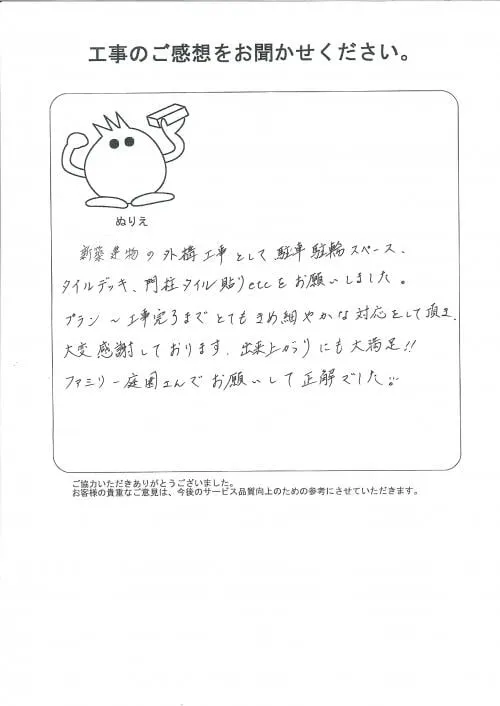 工事のご感想をお聞かせください。
ぬりえ
新築建物の外構工事として駐車駐輪スペース、
タイルデッキ、門柱タイル貼りetcをお願いしました。
プラン〜工事完了までとてもきめ細やかな対応をして頂き、
大変感謝しております。出来上がりにも大満足!!
ファミリー庭園さんでお願いして正解でした!!
ご協力いただきありがとうございました。
お客様の貴重なご意見は、今後のサービス品質向上のための参考にさせていただきます。